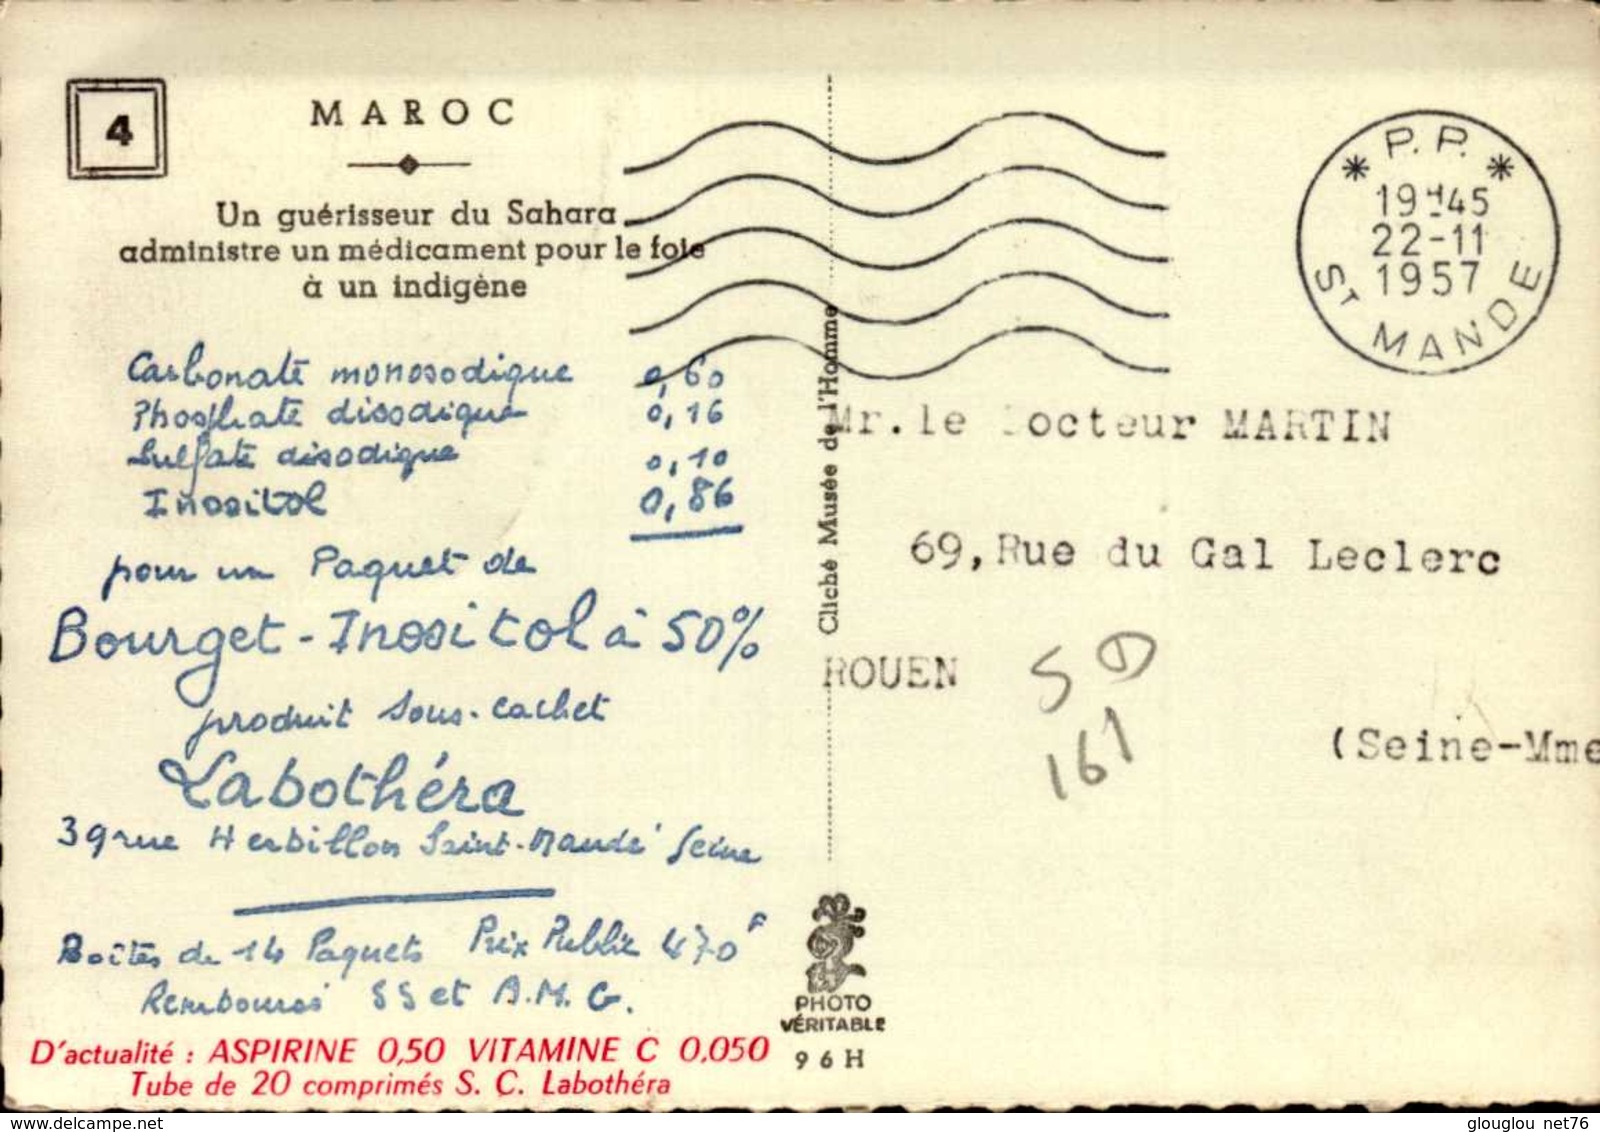 4
MAROC
Un guérisseur du Sahara
administre un médicament pour le foie
à un indigène
Carbonate monosodique 0,60
Phosphate disodique 0,16
Sulfate disodique 0,10
Inositol 0,86
pour un Paquet de
Bourget-Inositol à 50%
produit sous-cachet
Labothéra
39 rue Herbillon Saint-Mandé Seine
Boîtes de 14 Paquets Prix Public 470F
Remboursé SS et A.M.G.
D'actualité : ASPIRINE 0,50 VITAMINE C 0,050
Tube de 20 comprimés S. C. Labothéra
Cliché Musée de l'Homme
PHOTO
VÉRITABLE
96H
* P.P. *
19H45
22-11
1957
ST MANDE
Mr. le Docteur MARTIN
69, Rue du Gal Leclerc
ROUEN
(Seine-Mme
50
161
www.delcampe.net
glouglou_net76